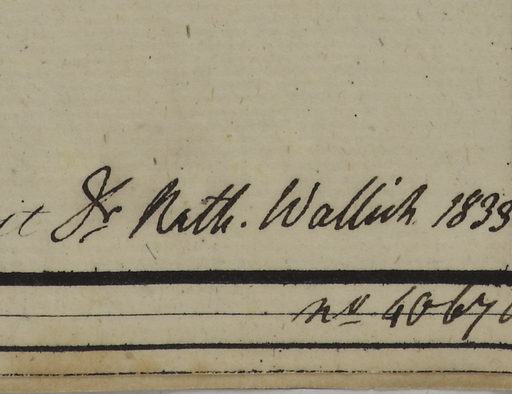 it Dr Nath. Wallich 1833
no 4067